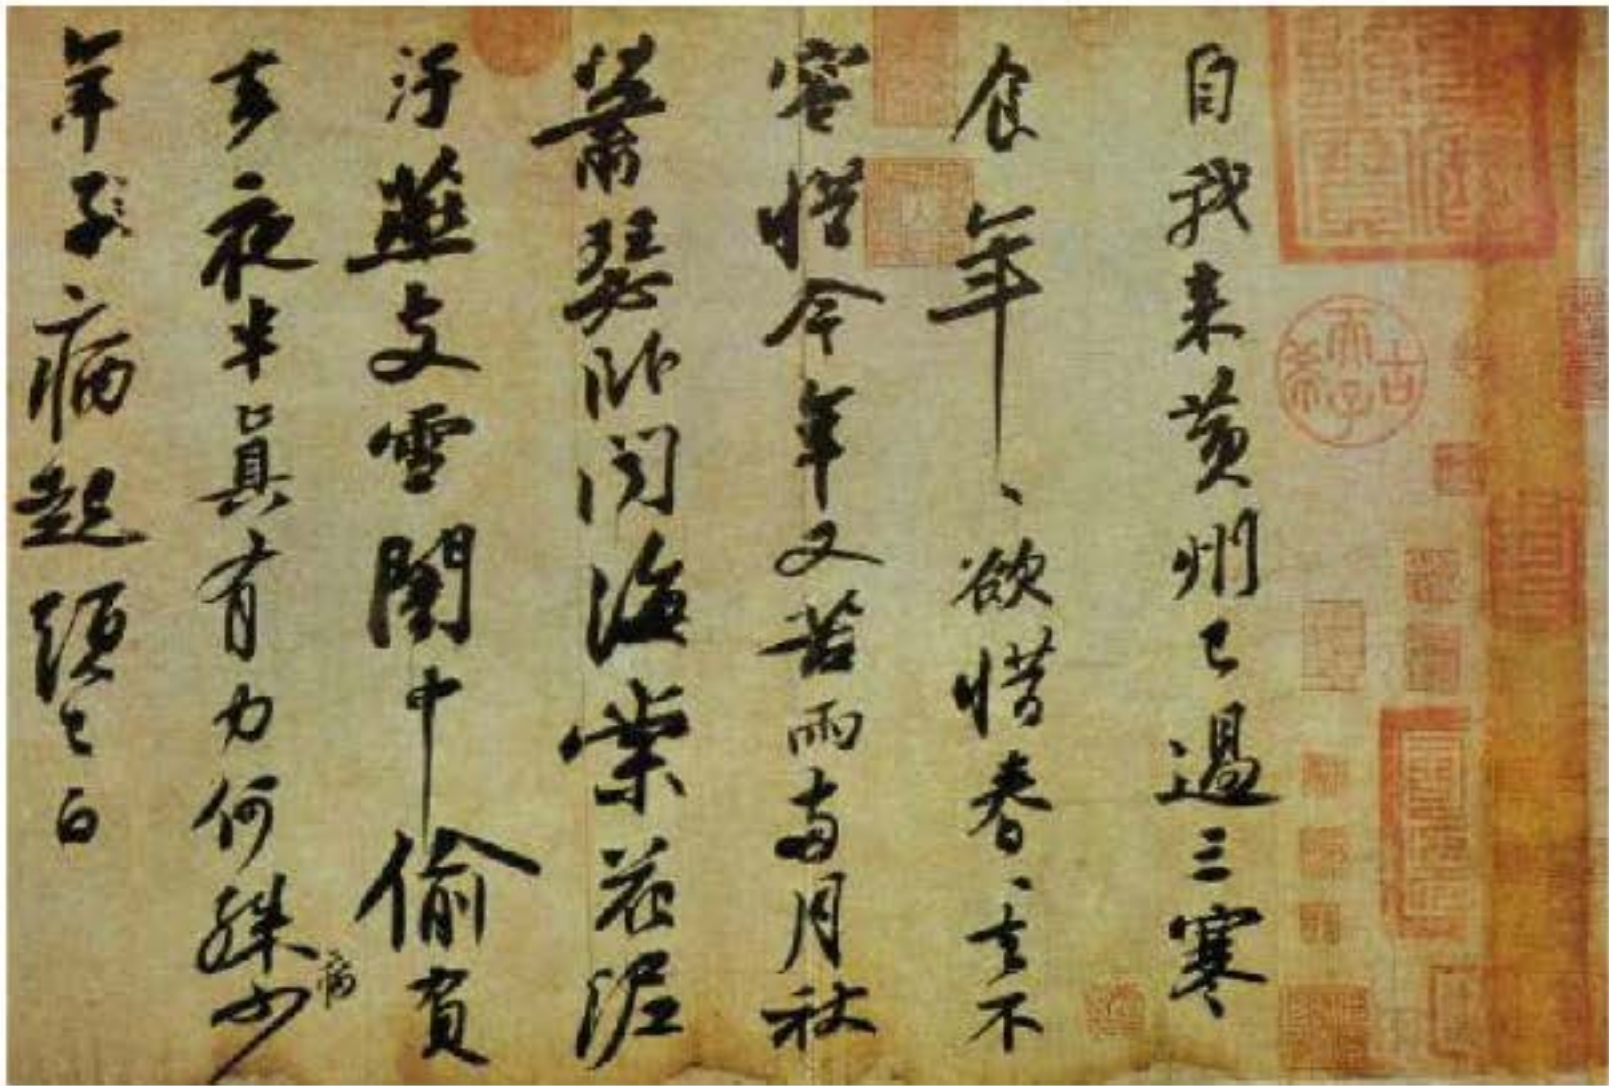 自我来黄州已過三寒
食年、欲惜春、去不
容惜今年又苦雨兩月秋
蕭瑟卧聞海棠花泥
汙燕支雪闇中偷負
去夜半真有力何殊少
病
年子病起頭已白
古希天子